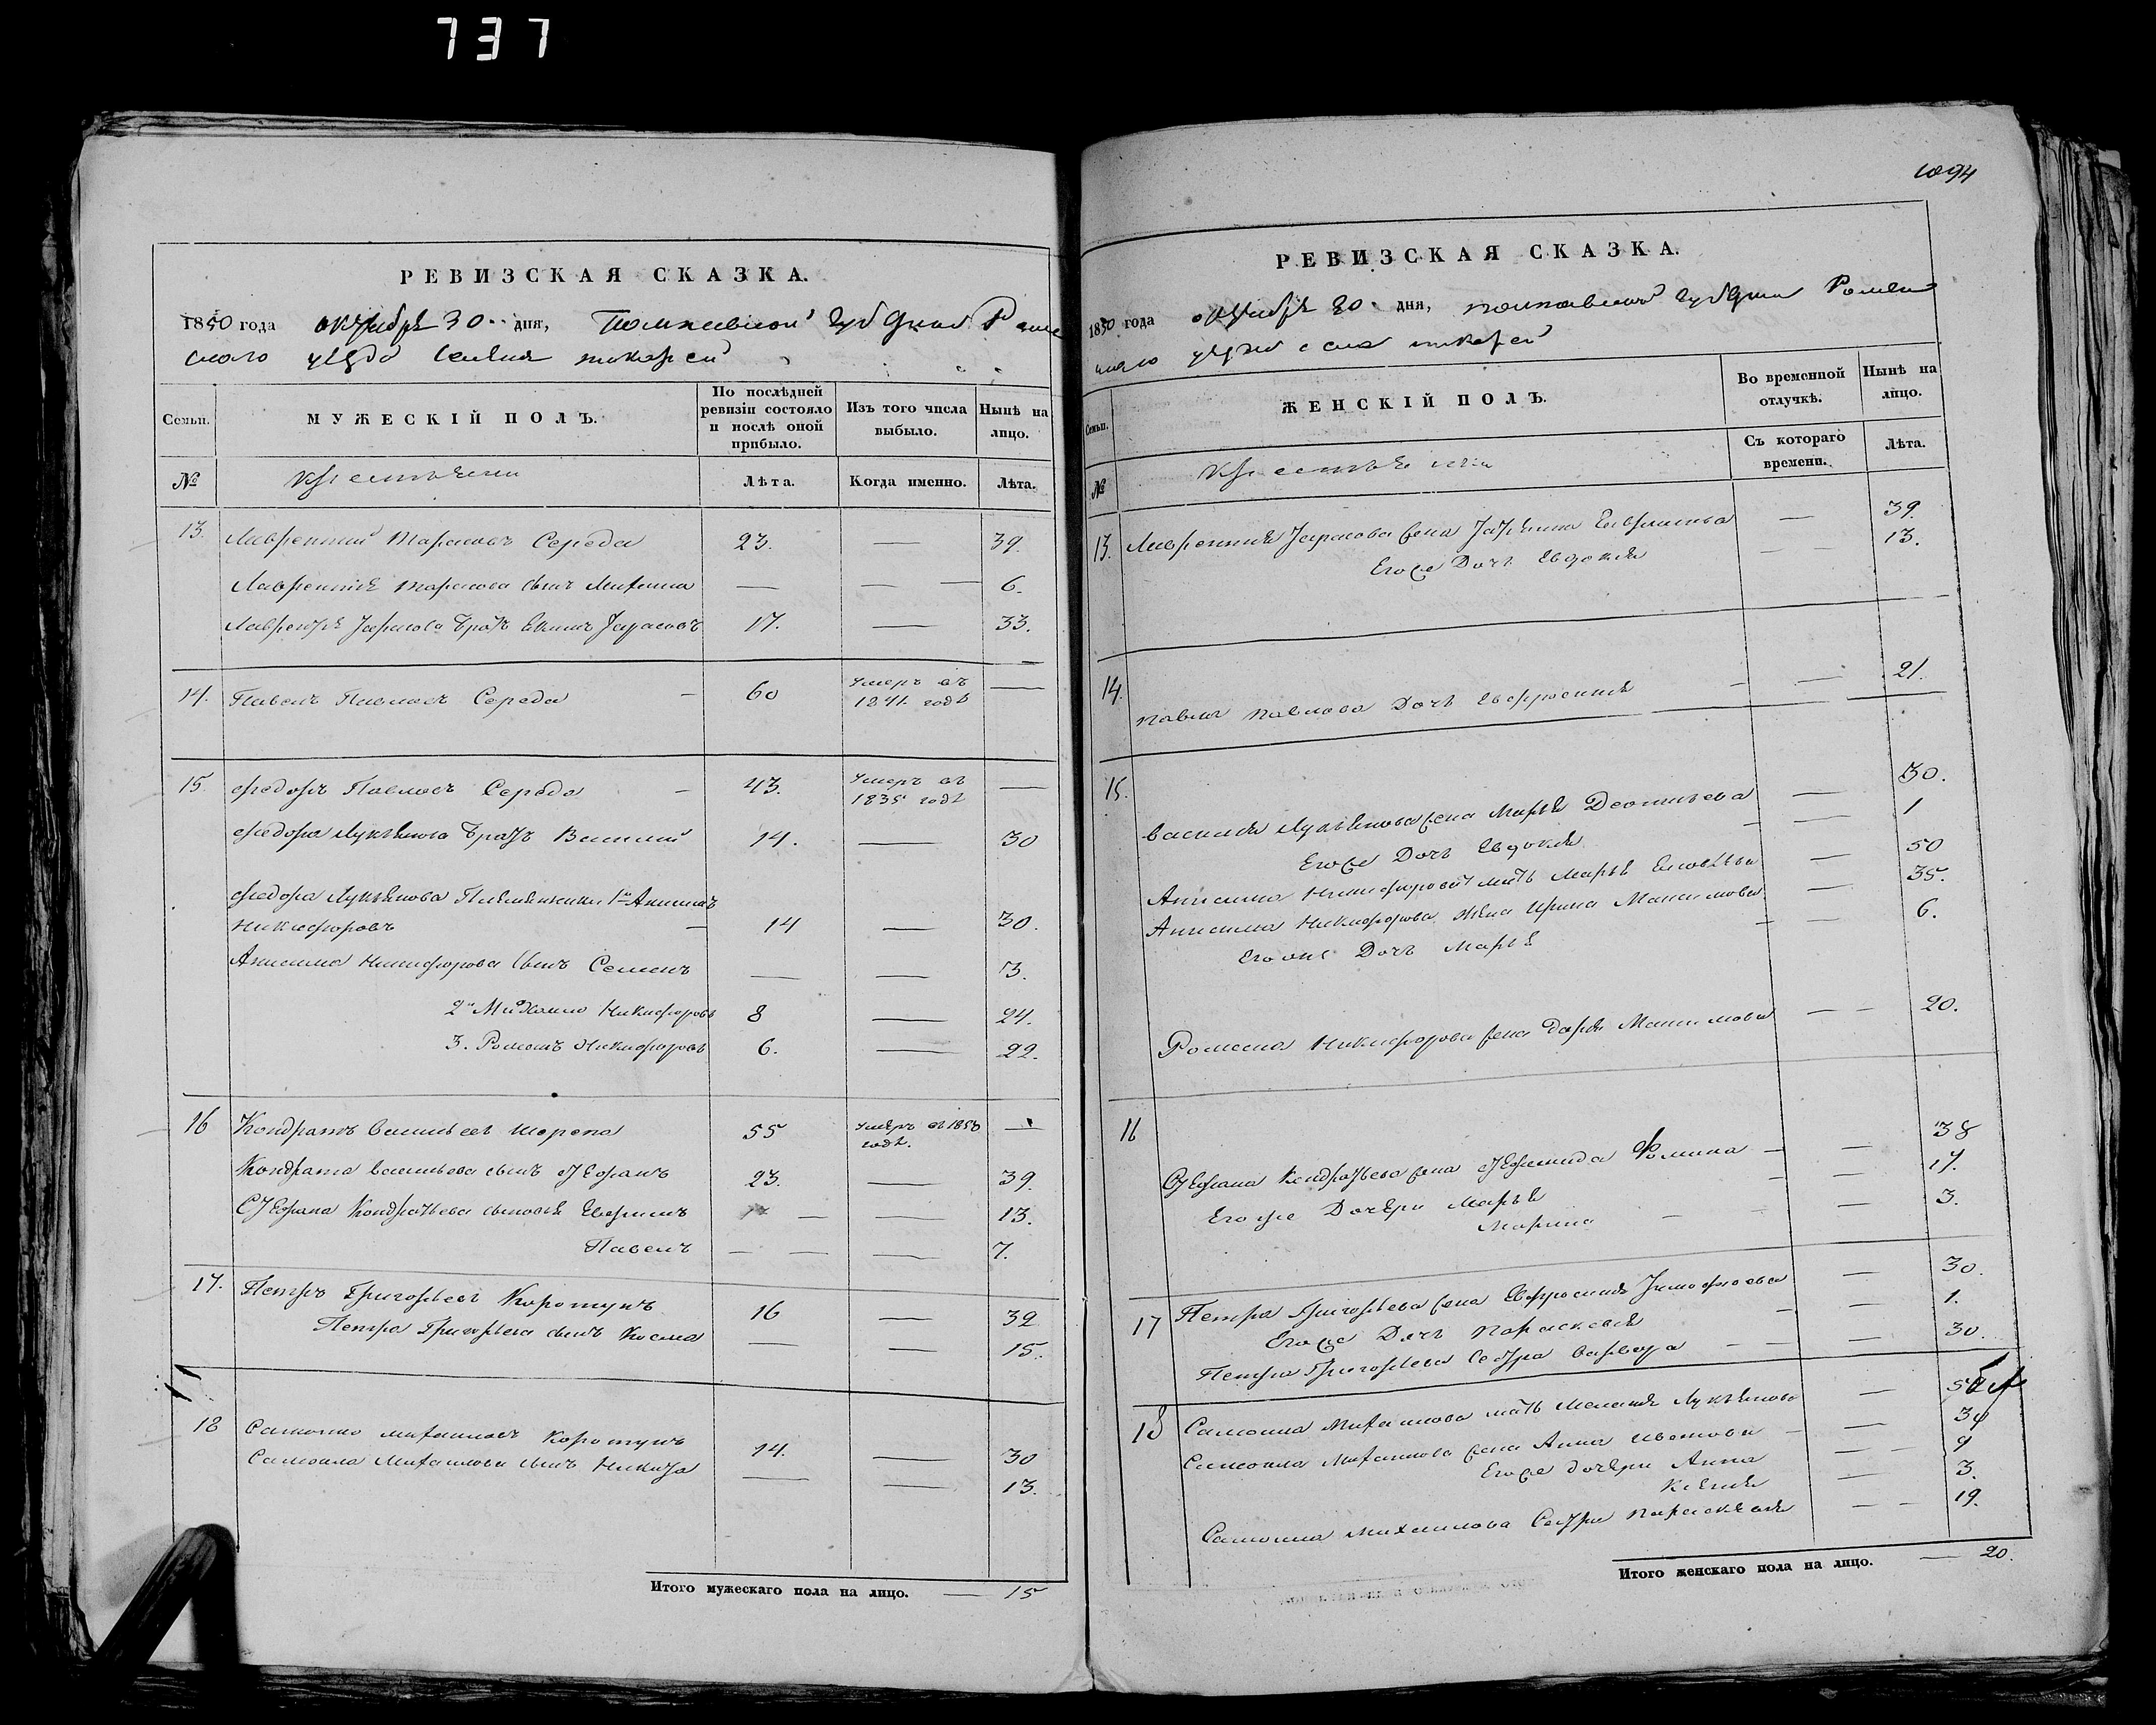 737
РЕВИЗСКАЯ СКАЗКА.
1850 года октября 30 дня, Полтавской губерніи Ромен
скаго уезда селенія токарей
Семьи.
МУЖЕСКІЙ ПОЛЪ.
По послѣдней ревизіи состояло и послѣ оной прибыло.
Изъ того числа выбыло.
Нынѣ на лицо.
№
Крестьяни
Лѣта.
Когда именно.
Лѣта.
13. Лаврентий Тарасовъ Середа 23. — 39.
Лаврентія Тарасова сынъ Михаила — — — 6.
Тарасова братъ Екимъ Тарасовъ 17. — 33.
14. Павелъ Павловъ Середа — 60 умеръ въ 1841. годѣ —
15. Федоръ Павловъ Середа — 43. умеръ въ 1835 годѣ —
Федора Лукьянова братъ Василий 14. — 30
Федора Лукьянова Племянники 1й Анисимъ
Никифоровъ — 14 — 30.
Анисима Никифорова сынъ Семенъ — — 3.
2й Михаило Никифоровъ 8 — 24.
3. Романъ Никифоровъ 6. — 22.
16 Кондратъ Васильевъ Шерепа 55 умеръ въ 1850 годѣ. —
Кондрата Васильева сынъ Стефанъ 23. — 39.
Стефана Кондратьева сыновья Евфимъ — — 13.
Павелъ — — — 7.
17. Петръ Григорьевъ Коротунъ 16 — 39
Петра Григорьева сынъ Косма — — 15.
18 Самоило Михаиловъ Коротунъ 14. — 30
Самоила Михаилова сынъ Никита — — 13.
Итого мужескаго пола на лицо. — 15
1094
РЕВИЗСКАЯ СКАЗКА.
1850 года октября 30 дня, полтавской губерніи Ромен
скаго уезда села токарей
Семьи.
ЖЕНСКІЙ ПОЛЪ.
Во временной отлучкѣ.
Нынѣ на лицо.
№
Съ котораго времени.
Лѣта.
13. Лаврентия Тарасова жена Гаврилова — 39.
Егоже Дочь Евдокия — — 13.
14. Павла Павлова Дочь Евфросиния — — 21.
15. Василия Лукьянова жена Марья — 30.
Егоже Дочь Евдокия — — 1
Анисима Никифорова мать Марья — 50
Анисима Никифорова жена Ирина Максимова — 35.
Егоже Дочь Марья — — 6.
Романа Никифорова жена Дарья Максимова — — 20.
16 Стефана Кондратьева жена Фомина — — 38
Егоже Дочери Марья — — 17.
Марина — — 3.
17 Петра Григорьева жена Евфросиния Тимофеева — 30.
Егоже Дочь Параскевия — — 1.
Петра Григорьева Сестра Варвара — — 30.
18 Самоила Михаилова мать Мелания Лукьянова —
Самоила Михаилова жена Анна Иванова — — 30
Егоже дочери Анна — — 9
Ксения — 3.
Самоила Михаилова Сестра Параскевия — — 19.
Итого женскаго пола на лицо. — 20.